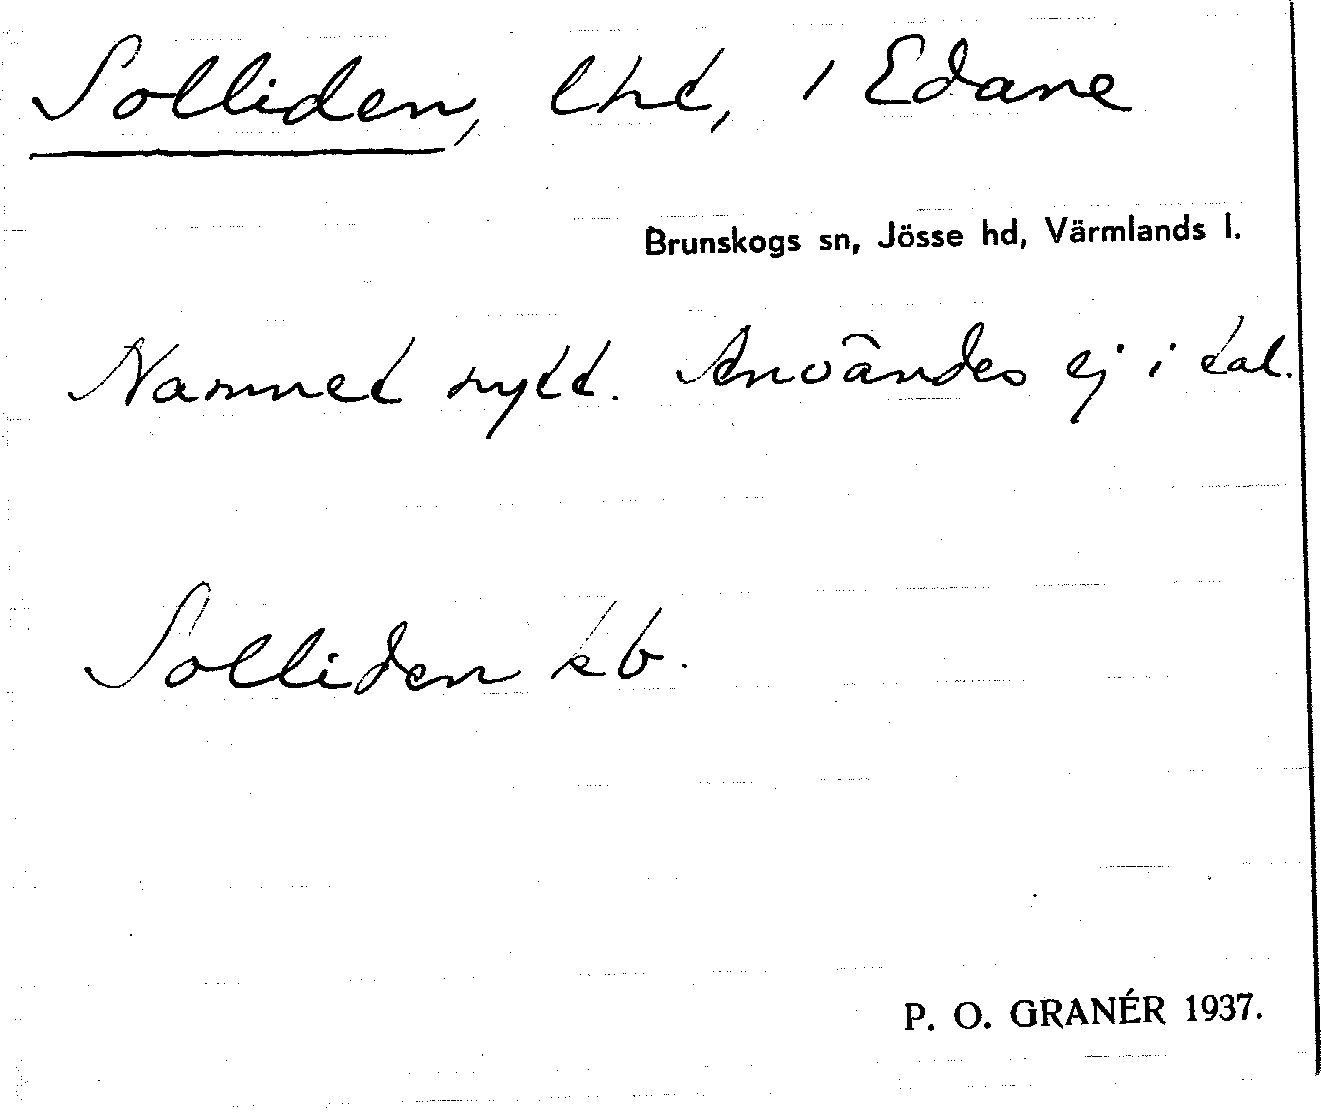 Solliden, lht, i Edane
Brunskogs sn, Jösse hd, Värmlands l.
Namnet nytt. Användes ej i tal.
Solliden kb.
P. O. GRANÉR 1937.